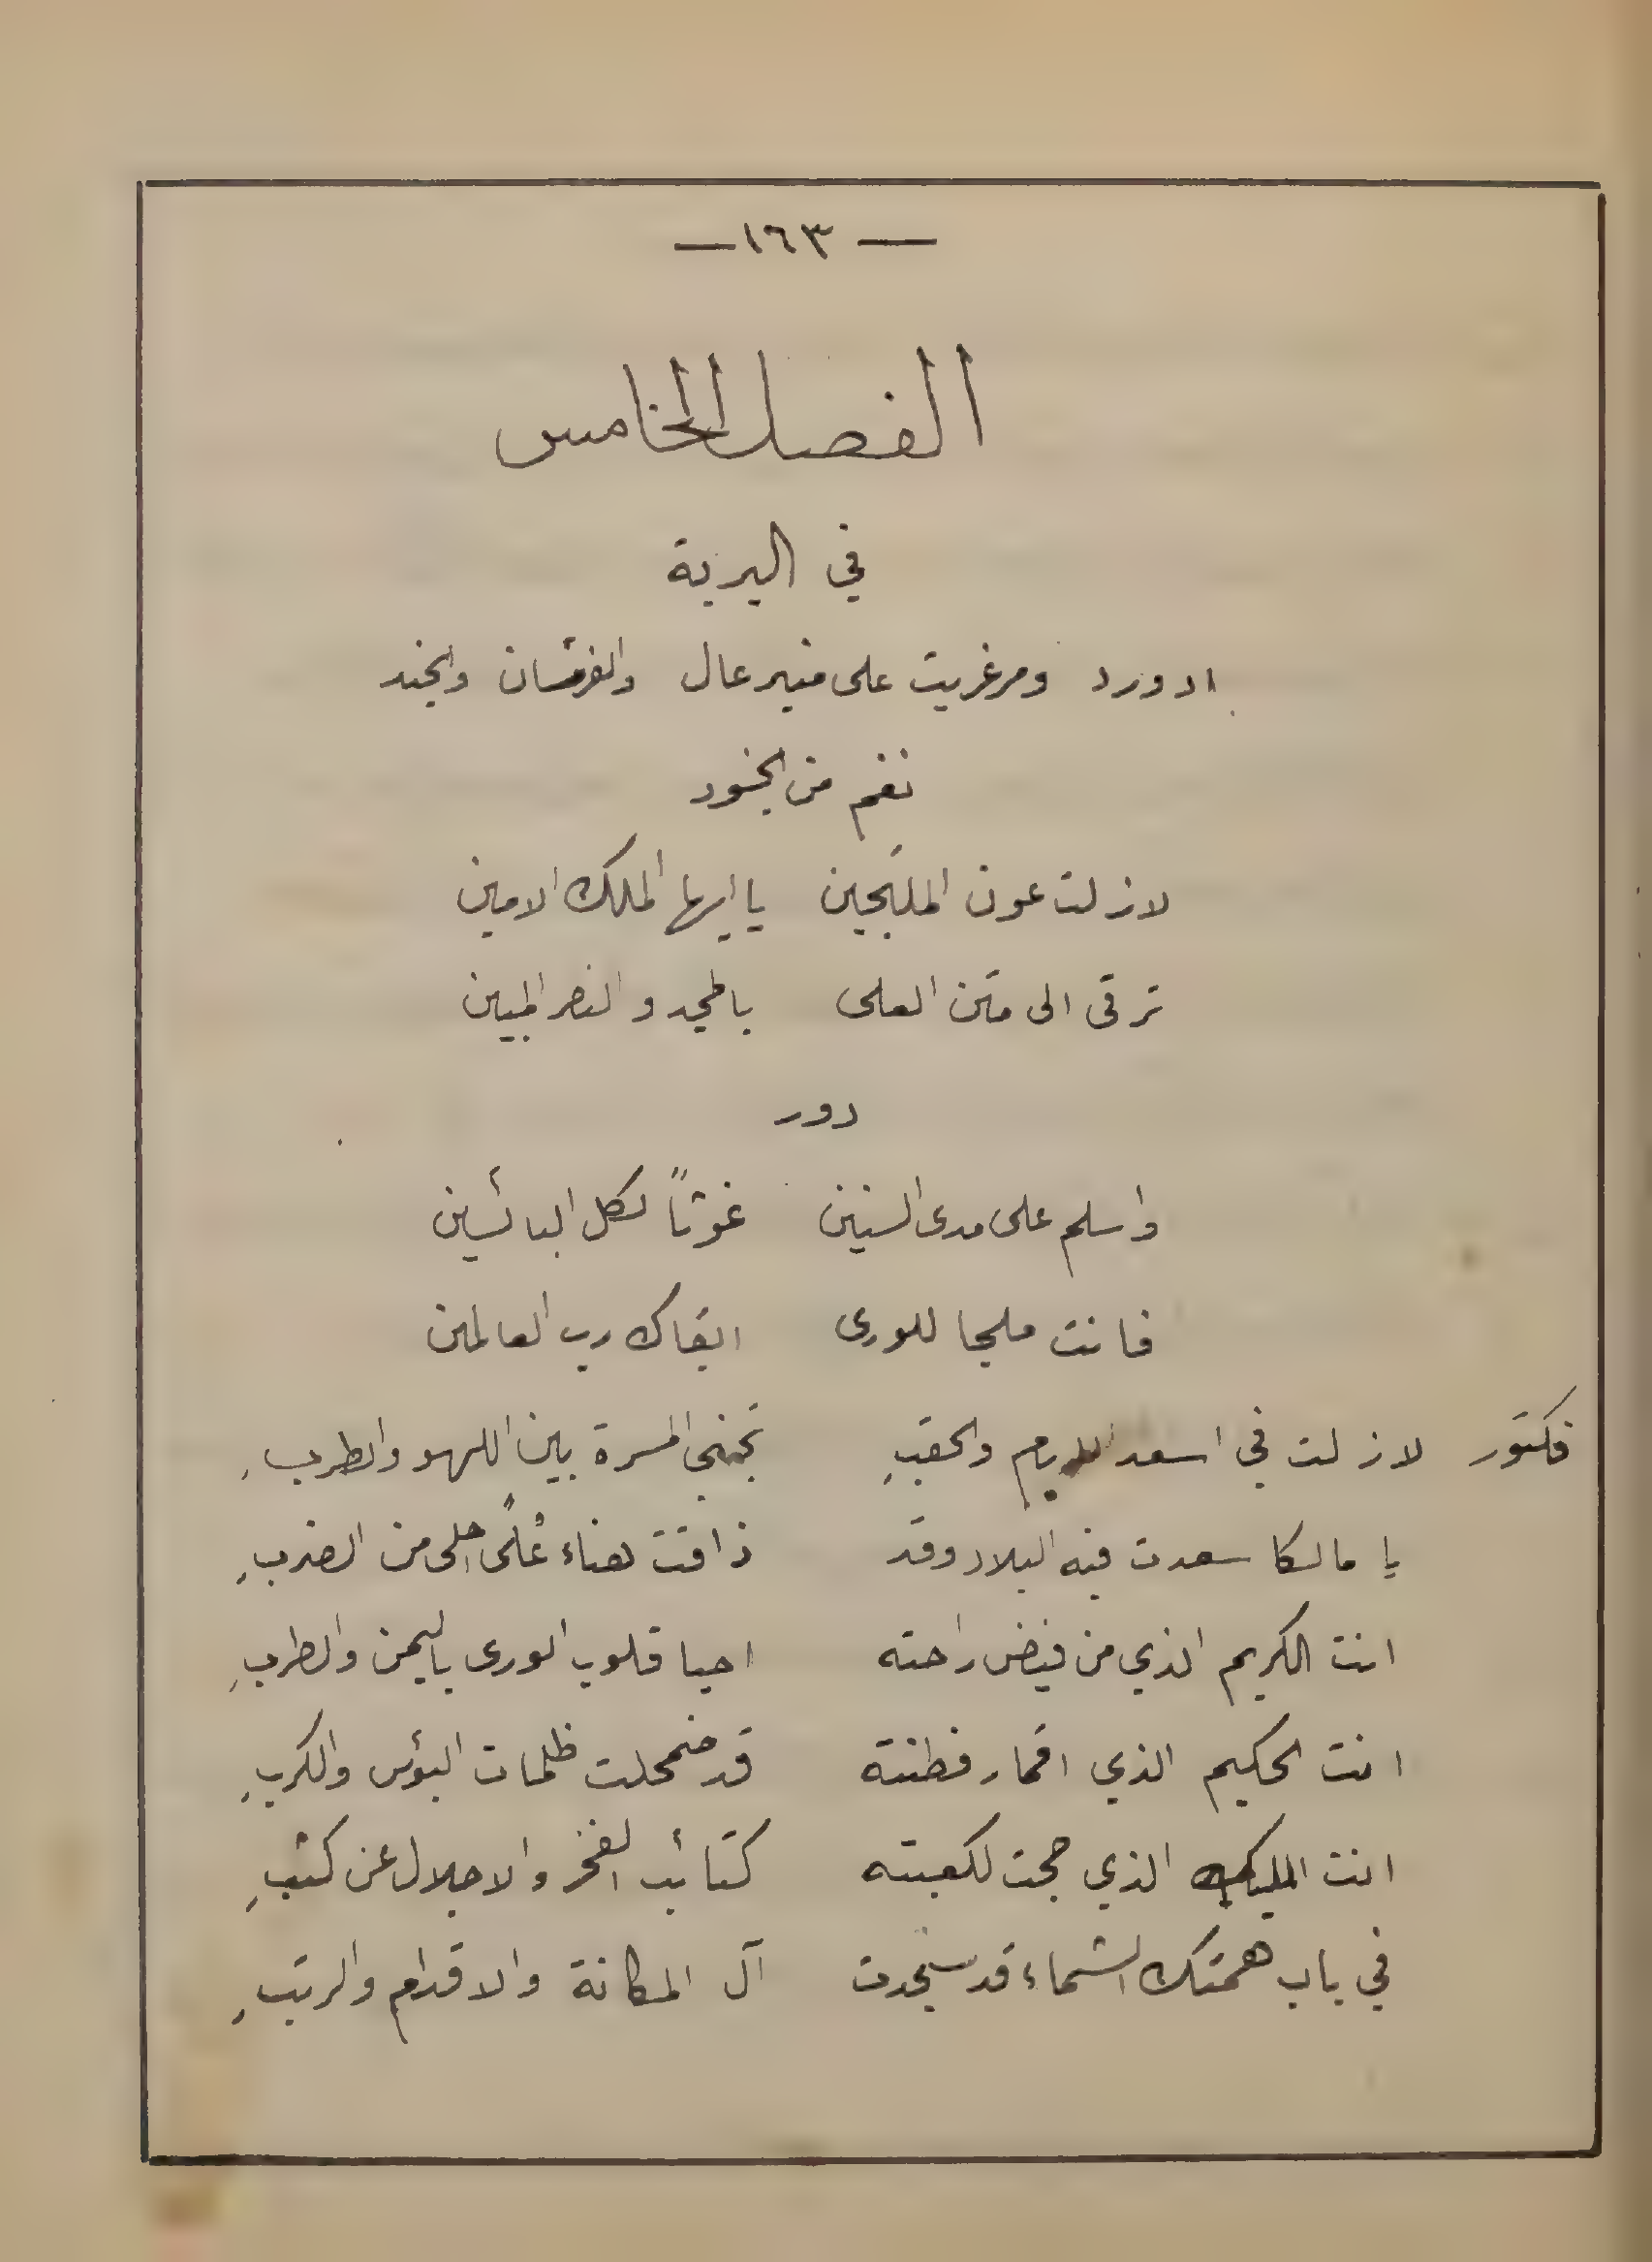 — ١٦٣ —
الفصل الخامس
في البرية
ادورد ومرغريت على منبر عال والفرسان والجند
نغم من الجنود
لازلت عون الملتجين يا ايها الملك الامين
ترقى الى متن العلى بالمجد والنصر المبين
دور
واسلم على مدى السنين غوثاً لكل البائسين
فانت ملجا للورى ابقاك رب العالمين
فكتور لازلت في اسعد الايام والحقبِ تجني المسرة بين اللهو والطربِ
يا مالكا سعدت فيه البلاد وقد ذاقت هناء عُلًى احلى من الضربِ
انت الكريم الذي من فيض راحته احيا قلوب الورى باليمن والطربِ
انت الحكيم الذي اقمار فطنته قد ضمحلت ظلمات البؤس والكربِ
انت المليك الذي حجت لكعبته كتائب الفخر والاجلال عن كثبِ
في باب همتك الشماء قد سجدت آل المكانة والاقدام والرتبِ